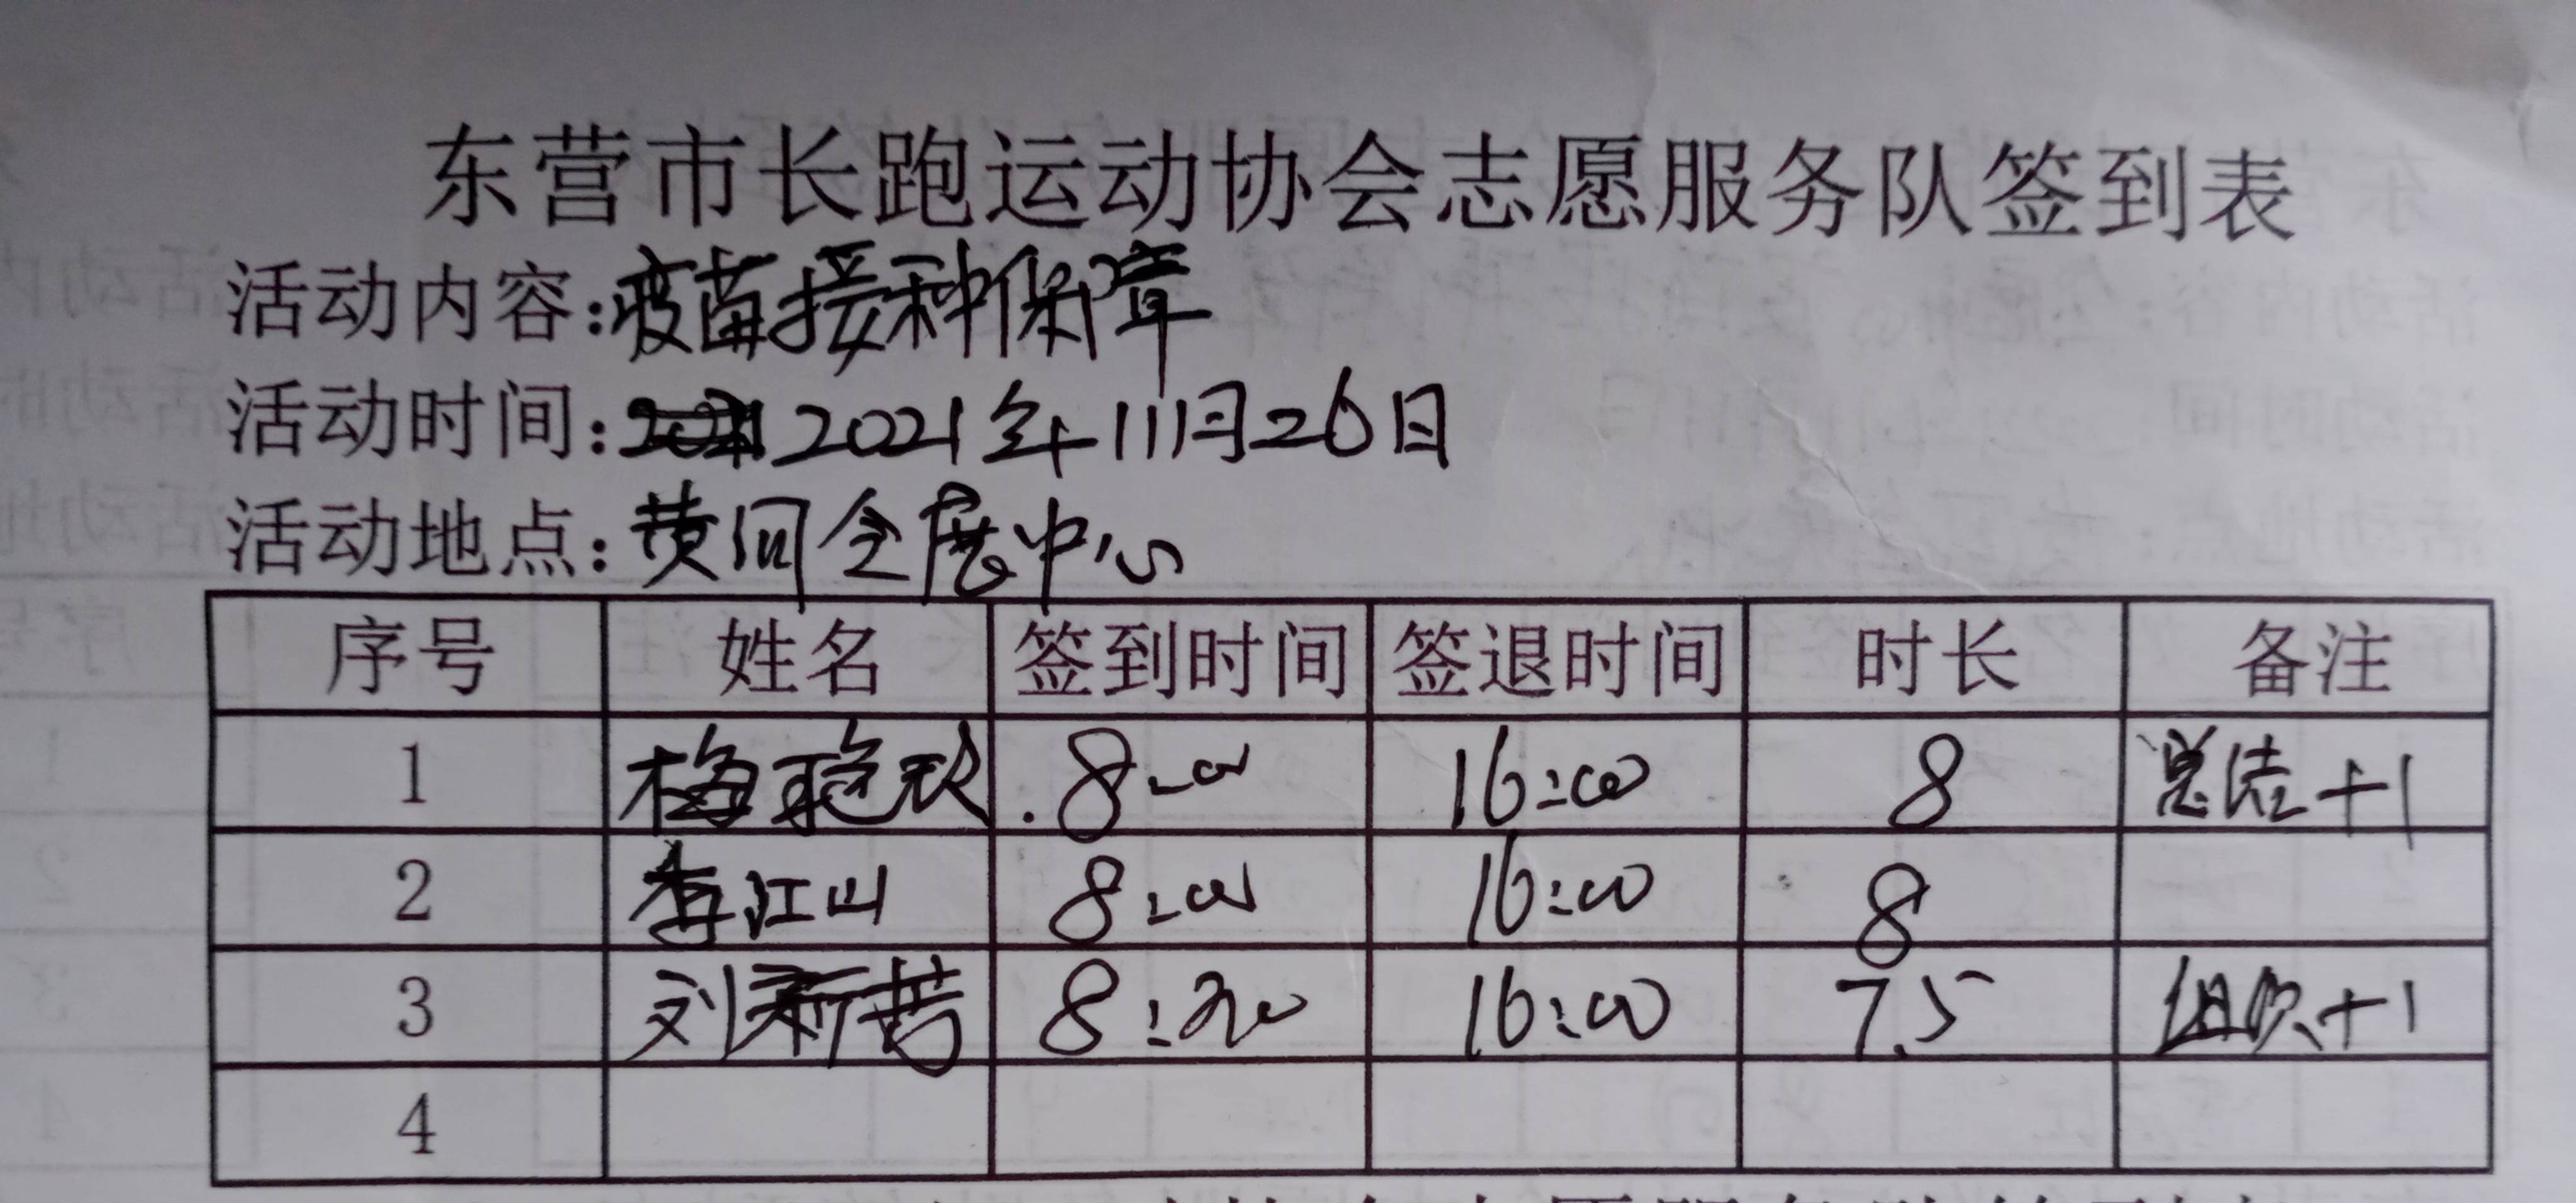 东营市长跑运动协会志愿服务队签到表
活动内容:疫苗接种保障
活动时间:2021年11月26日
活动地点:黄河会展中心
序号 姓名 签到时间 签退时间 时长 备注
1 梅艳秋 8:00 16:00 8 总结+1
2 李江山 8:00 16:00 8
3 刘新芳 8:30 16:00 7.5 组织+1
4